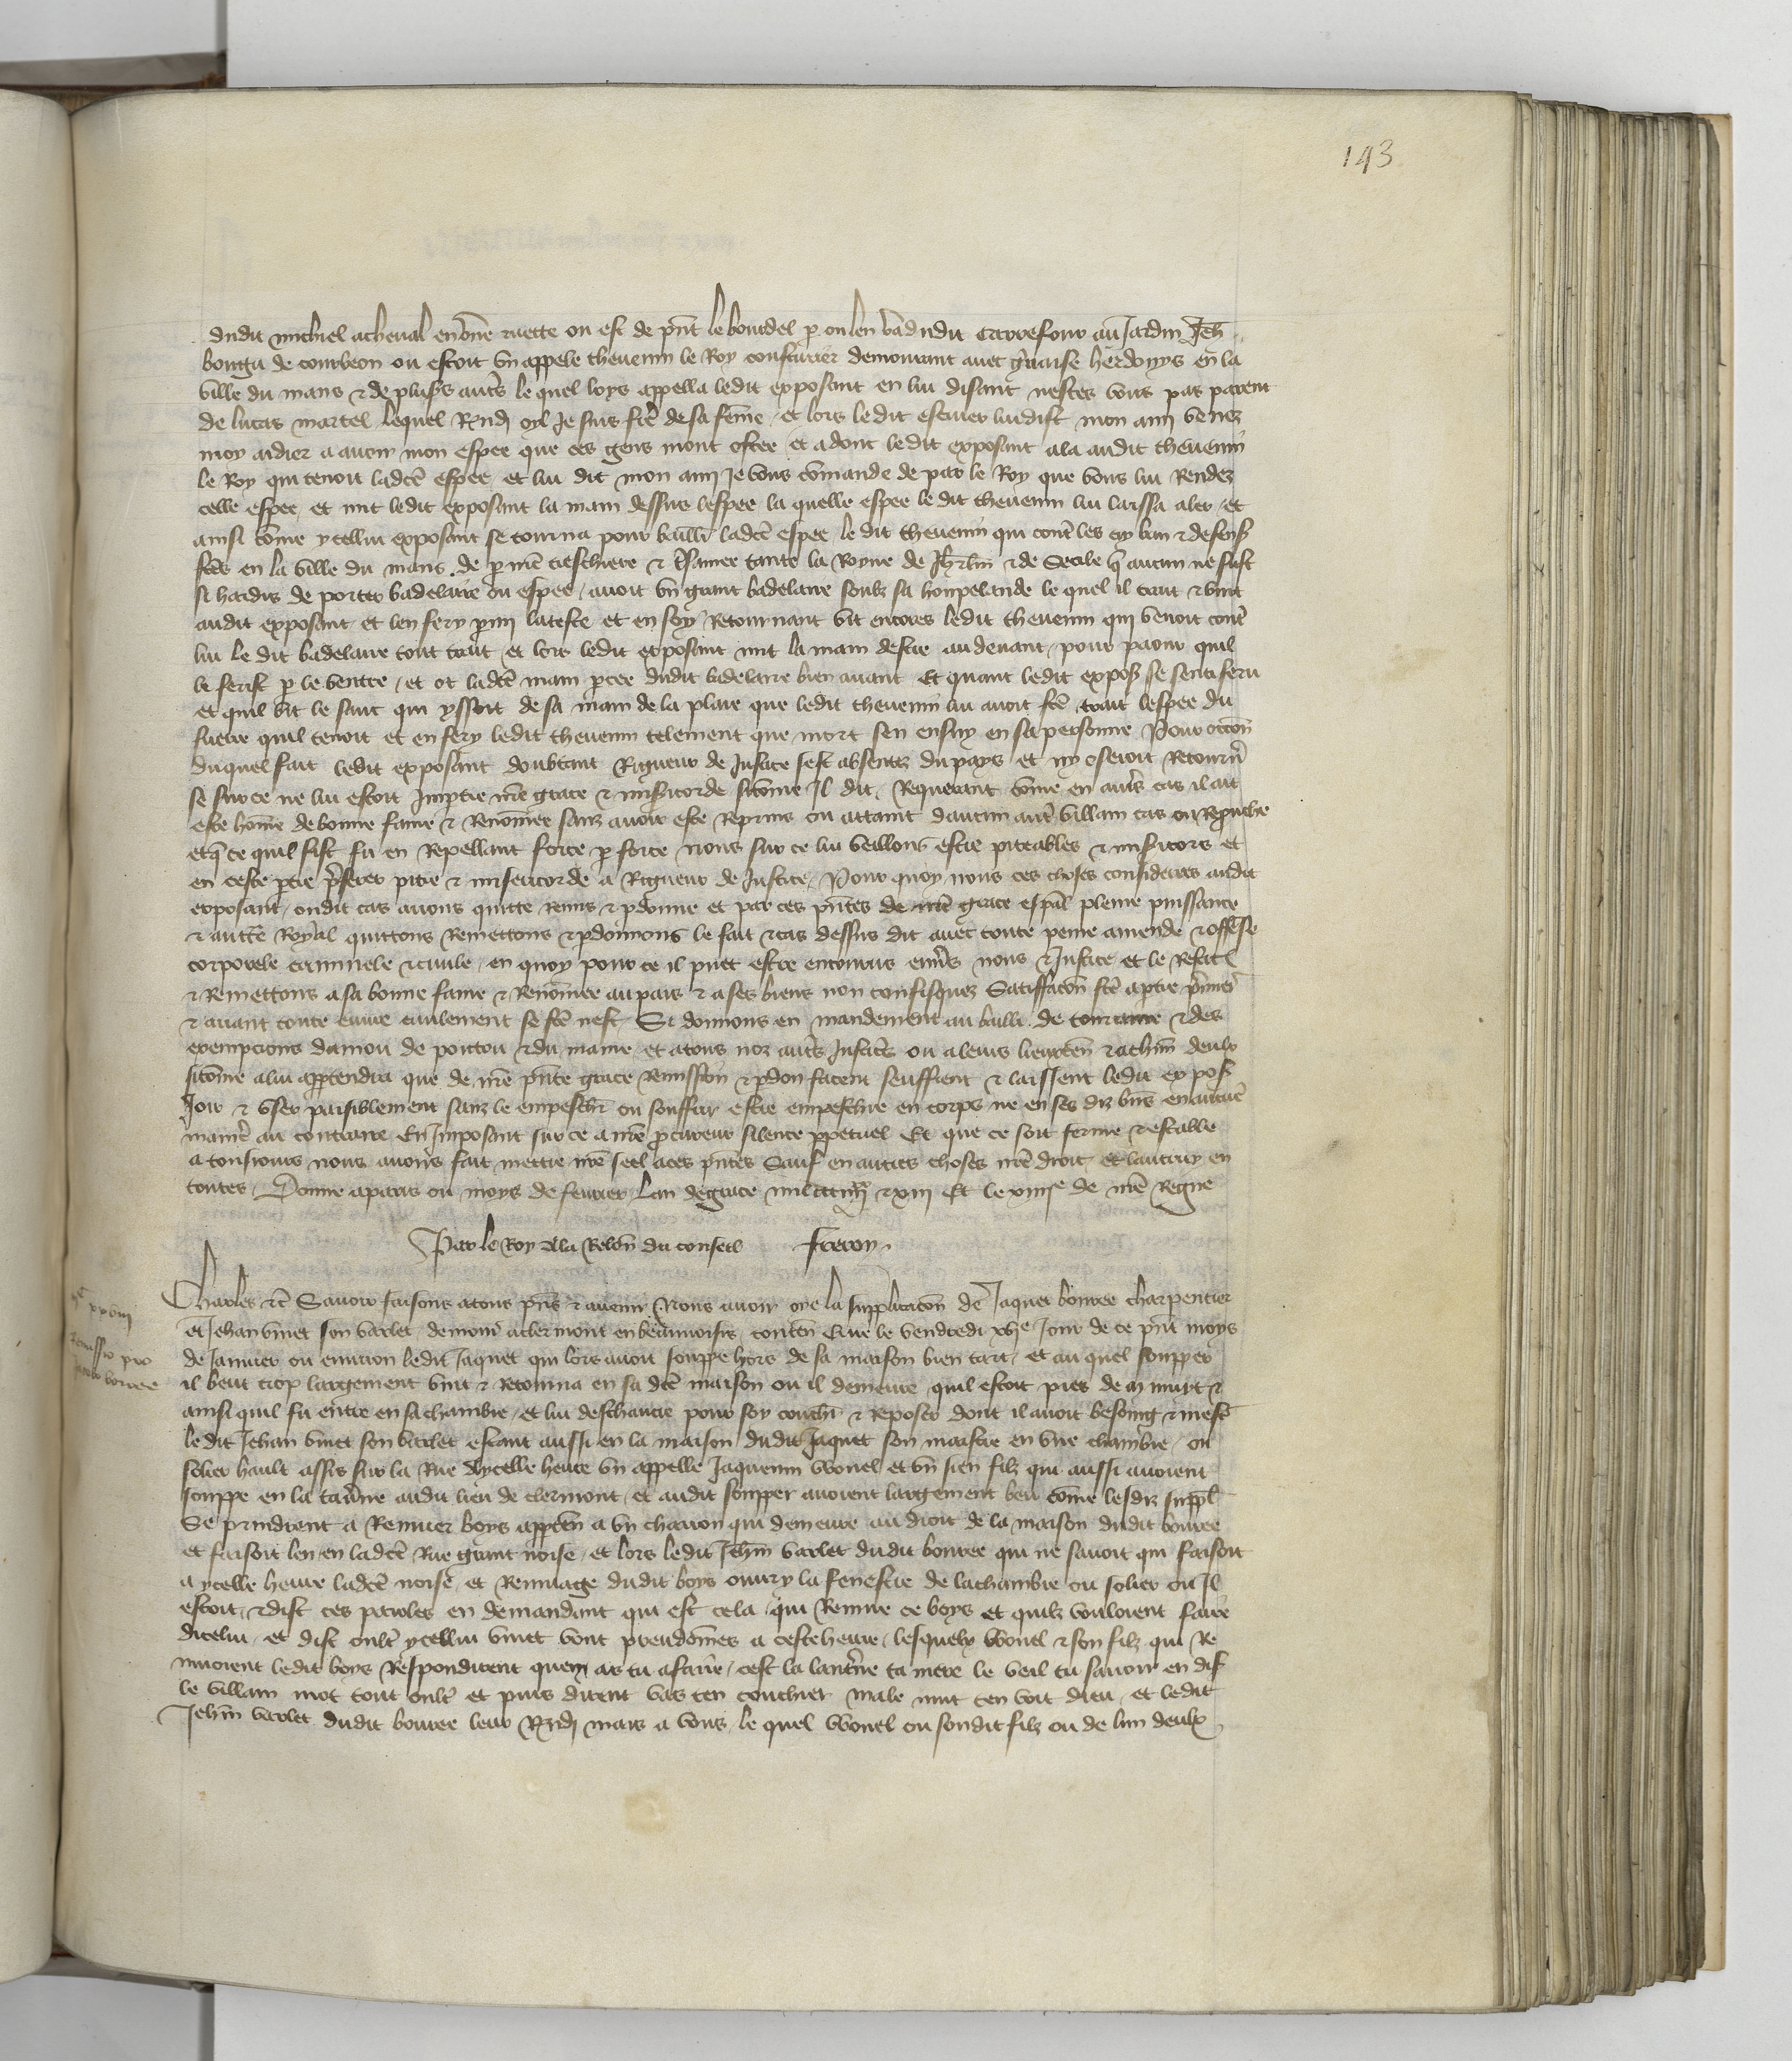 143
dudit michiel acheval en une ruette ou est de pnt le bourdel p ou len va dudit carrefour au Jardin Jeh
bougu de courbeon ou estoit un appele thevenin le Roy cousturier demourant avec gervaise herdoyys en la
ville du mans & de plusrs autrs le quel loys appella ledit exposant en lui disant nestes vous pas parent
de lucas martel lequel Rndi oil Je suis fre de sa feme et lors le dit escuier lui dist mon ami venez
moy aidier a avoir mon espee que ces gens mont ostee et adont ledit exposant ala audit thevenin
le Roy qui tenoit ladce espee et lui dit mon ami Je vous comande de par le Roy que vous lui Rendez
celle espee et mit ledit exposant la main dessus lespee la quelle espee le dit thevenin lui laissa aler et
ainsi come ycellui exposant se tourna pour baillr ladce espee le dit thevenin qui contre les cry ban & defens
fcs en la ville du mans de p nre treschiere & tsamee tante la Royne de Jhrlm & de Secile q aucun ne fust
si hardis de porter badelaire ou espee avoit un grant badelaire soubz sa houpelande le quel il trait & vint
audit exposant et len fery pmi lateste et en soy Retournant vit encores ledit thevenin qui venoit contre
lui le dit badelaire tout trait et lors ledit exposant mit la main destre au devant pour paour quil
le ferist p le ventre et ot ladce main pcee dudit badelaire bien avant Et quant ledit expos se senti feru
et quil vit le sanc qui yssoit de sa main de la plaie que ledit thevenin lui avoit fce trait lespee du
fuerre quil tenoit et en fery ledit thevenin telement que mort sen ensuy en sa personne Pour occon
duquel fait ledit exposant doubtant Rigueur de Justice sest absentez du pays et ny oseroit Retournr
se sur ce ne lui estoit Imptie nre grace & misericorde sicome Il dit Requerant come en autrs cas il ait
este home de bonne fame & Renomee sanz avoir este Reprins ou attaint daucun autre villain cas ou Reprouche
et q ce quil fist fu en Repellant force p force nous sur ce lui veillons estre piteables & misericors et
en ceste ptie pferer pitie & misericorde a Rigueur de Justice Pour quoy nous ces choses considerees audit
exposant ondit cas avons quitte Remis & pdonne et par ces pntes de nre grace espal pleine puissance
& aucte Royal quittons Remettons & pdonnons le fait & cas dessus dit avec toute peine amende & offense
corporele criminele & civile en quoy pour ce il puet estre encouru envrs nous & Justice et le Restit
& Remettons a sa bonne fame & Renomee au pais & a ses biens non confisquez Satisffacon fce aptie primier
& avant toute euvre civilement se fce nest Si donnons en mandement au bailli de touraine & des
exempcions danjou de poitou & du maine et atous noz autrs Justicrs ou aleurs lieuxten & achun deulx
sicome alui apptendra que de nre pnte grace Remission & pdon facent seuffrent & laissent ledit expos
Joir & user paisiblement sanz le empeschr ou souffrir estre empeschie en corps ne en ses diz bns en aucune
manie au contraire En Imposant sur ce a nre pcureur silence ppetuel Et que ce soit ferme & estable
a tousiours nous avons fait mettre nre seel aces pntes Sauf en autres choses nre droit et lautruy en
toutes Donne aparis ou moys de fevrier Lan de grace mil CCC iiiixx & xiii Et le xiiiie de nre Regne
Par le Roy ala Relon du conseil Freron
Charles &c Savoir faisons atous pns & avenir Nous avoir oye la supplicacon de Jaquet bouree charpentier
et Jehan vivet son varlet demour aclermont en beauvoisis conten Que le vendredi xvie Jour de ce pnt moys
Remissio pro
bouree
de Janvier ou environ ledit Jaquet qui lors avoit souppe hors de sa maison bien tart et au quel soupper
il beut trop largement vint & Retourna en sa dce maison ou il demeure quil estoit pres de mynuyt &
ainsi quil fu entre en sa chambre et lui deschaucie pour soy couchr & reposer dont il avoit besoing & mest
le dit Jehan vivet son varlet estant aussi en la maison dudit Jaquet son maistre en une chambre ou
solier hault assis sur la Rue dycelle heure un appelle Jaquemin Wouel et un sien filz qui aussi avoient
souppe en la taverne audit lieu de clermont et audit soupper avoient largement beu come lesdiz suppl
Se prindrent a Remuer boys appten a un charron qui demeure au droit de la maison dudit bouree
et faisoit len en ladce Rue grant noise et lors ledit Jehan varlet dudit bouree qui ne savoit qui faisoit
a ycelle heure ladce noise et Remuage dudit boys ouvry la fenestre de lachambre ou solier ou Il
estoit & dist ces paroles en demandant qui est cela qui Remue ce boys et quilz vouloient faire
dicelui et dist oultre ycellui vivet vont preudomes a ceste heure lesquelx Wouel & son filz qui Re
muoient ledit boys Respondirent quen as tu afaire cest la lanterne ta mere le veil tu savoir en dis
le villain mot tout oultre et puis dirent vas ten couchier male nuit ten voit dieu et ledit
Jehan varlet dudit bouree leur Rndi mais a vous le quel Wouel ou sondit filz ou de lun deulx